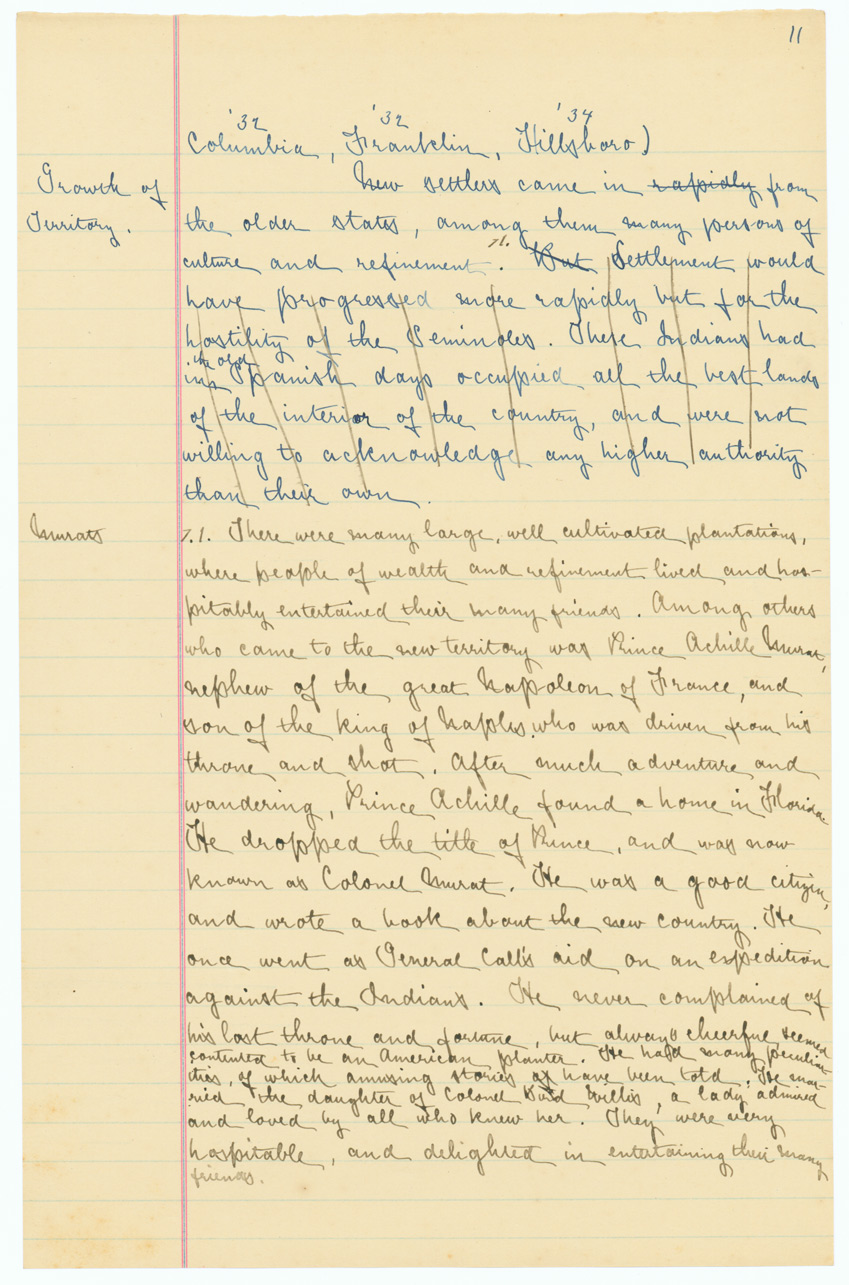 11
'32 '32 '34
Columbia, Franklin, Hillsboro)
Growth of
Territory.
New settlers came in rapidly from
the older states, among them many persons of
culture and refinement. But Settlement would
have progressed more rapidly but for the
hostility of the Seminoles. These Indians had
in the old Spanish days occupied all the best lands
of the interior of the country, and were not
willing to acknowledge any higher authority
than their own.
Murats
7.1. There were many large, well cultivated plantations,
where people of wealth and refinement lived and hos-
pitably entertained their many friends. Among others
who came to the new territory was Prince Achille Murat,
nephew of the great Napoleon of France, and
son of the king of Naples, who was driven from his
throne and shot. After much adventure and
wandering, Prince Achille found a home in Florida.
He dropped the title of Prince, and was now
known as Colonel Murat. He was a good citizen,
and wrote a book about the new country. He
once went as General Call's aid on an expedition
against the Indians. He never complained of
his lost throne and fortune, but always cheerful seemed
contented to be an American planter. He had many peculiar-
ities, of which amusing stories have been told. He mar-
ried the daughter of Colonel Willis, a lady admired
and loved by all who knew her. They were very
hospitable, and delighted in entertaining their many
friends.